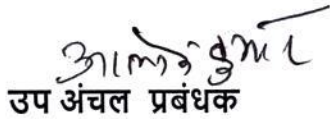 आलोक कुमार
उप अंचल प्रबंधक